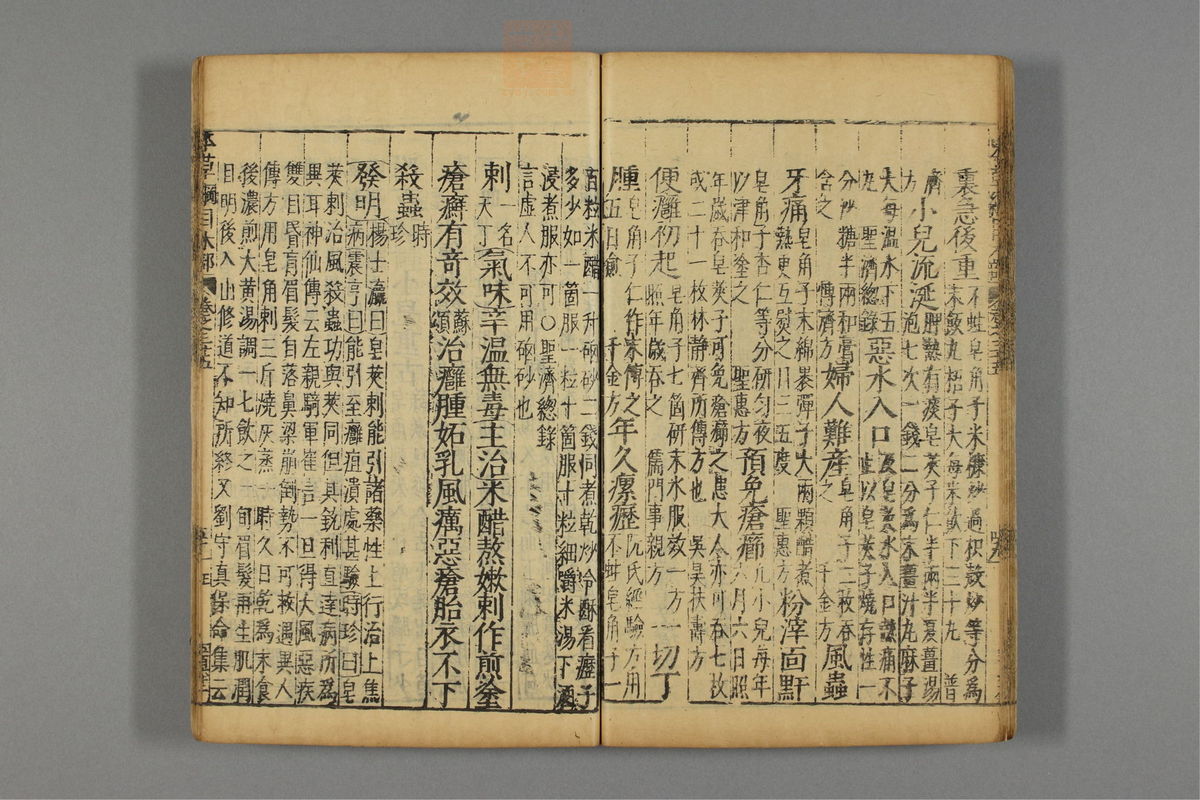 裏急後重不蛀皂角子米糠炒過枳殼炒等分爲
末飯丸梧子大每米飲下三十丸 普
濟小兒流涎脾熱有痰皂莢子仁半兩半夏薑湯
方泡七次一錢二分爲末薑汁丸麻子
大每溫水下五惡水入口及皂莢水入口熱痛不
丸 聖濟總錄止以皂莢子燒存性一
分沙糖半兩和膏婦人難產皂角子二枚吞風蟲
含之 博濟方之 千金方
牙痛皂角子末綿裹彈子大兩顆醋煮粉滓面䵟
熱更互熨之日三五度 聖惠方
皂角子杏仁等分研勻夜預免瘡癤凡小兒每年
以津和塗之 聖惠方六月六日照
年歲吞皂莢子可免瘡癤之患大人亦可吞七枚
或二十一枚林靜齋所傳方也 吳旻扶壽方
便癰初起皂角子七箇研末水服效一方一切丁
照年歲吞之 儒門事親方
腫皂角子仁作末傅之年久瘰癧阮氏經驗方用
五日愈 千金方不蛀皂角子一
百粒米醋一升硇砂二錢同煮乾炒令酥看癧子
多少如一箇服一粒十箇服十粒細嚼米湯下酒
浸煮服亦可○聖濟總錄
言虛人不可用硇砂也
刺一名天丁氣味辛溫無毒主治米醋熬嫩刺作煎塗
瘡癬有奇效蘇頌治癰腫妬乳風癘惡瘡胎衣不下
殺蟲時珍
發明楊士瀛曰皂莢刺能引諸藥性上行治上焦
病震亨曰能引至癰疽潰處甚驗時珍曰皂
莢刺治風殺蟲功與莢同但其銳利直達病所爲
異耳神仙傳云左親騎軍崔言一旦得大風惡疾
雙目昏盲眉髮自落鼻梁崩倒勢不可救遇異人
傳方用皂角刺三斤燒灰蒸一時久日乾爲末食
後濃煎大黃湯調一七飲之一旬眉髮再生肌潤
目明後入山修道不知所終又劉守真保命集云
本草綱目木部 卷之三十五